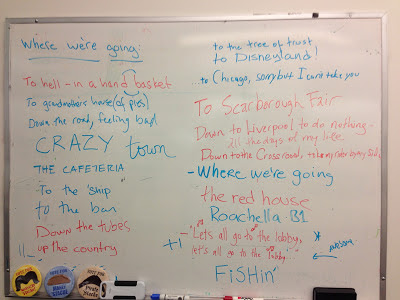 Where we're going:
To hell - in a hand basket
To grandmother's house (of pies)
Down the road, feeling bad
CRAZY town
THE CAFETERIA
To the 'ship
to the bar
Down the tubes
up the country
to the tree of trust
to Disneyland!
... to Chicago, sorry but I can't take you
To Scarborough Fair
Down to Liverpool to do nothing
all the days of my life
Down to the Crossroad, take my rider by my side
- Where we're going
the red house
Roachella. B1
- "Let's all go to the lobby,
let's all go to the lobby"
+1
FiSHin'
VOTE FOR
VOTE FOR
VOTE FOR